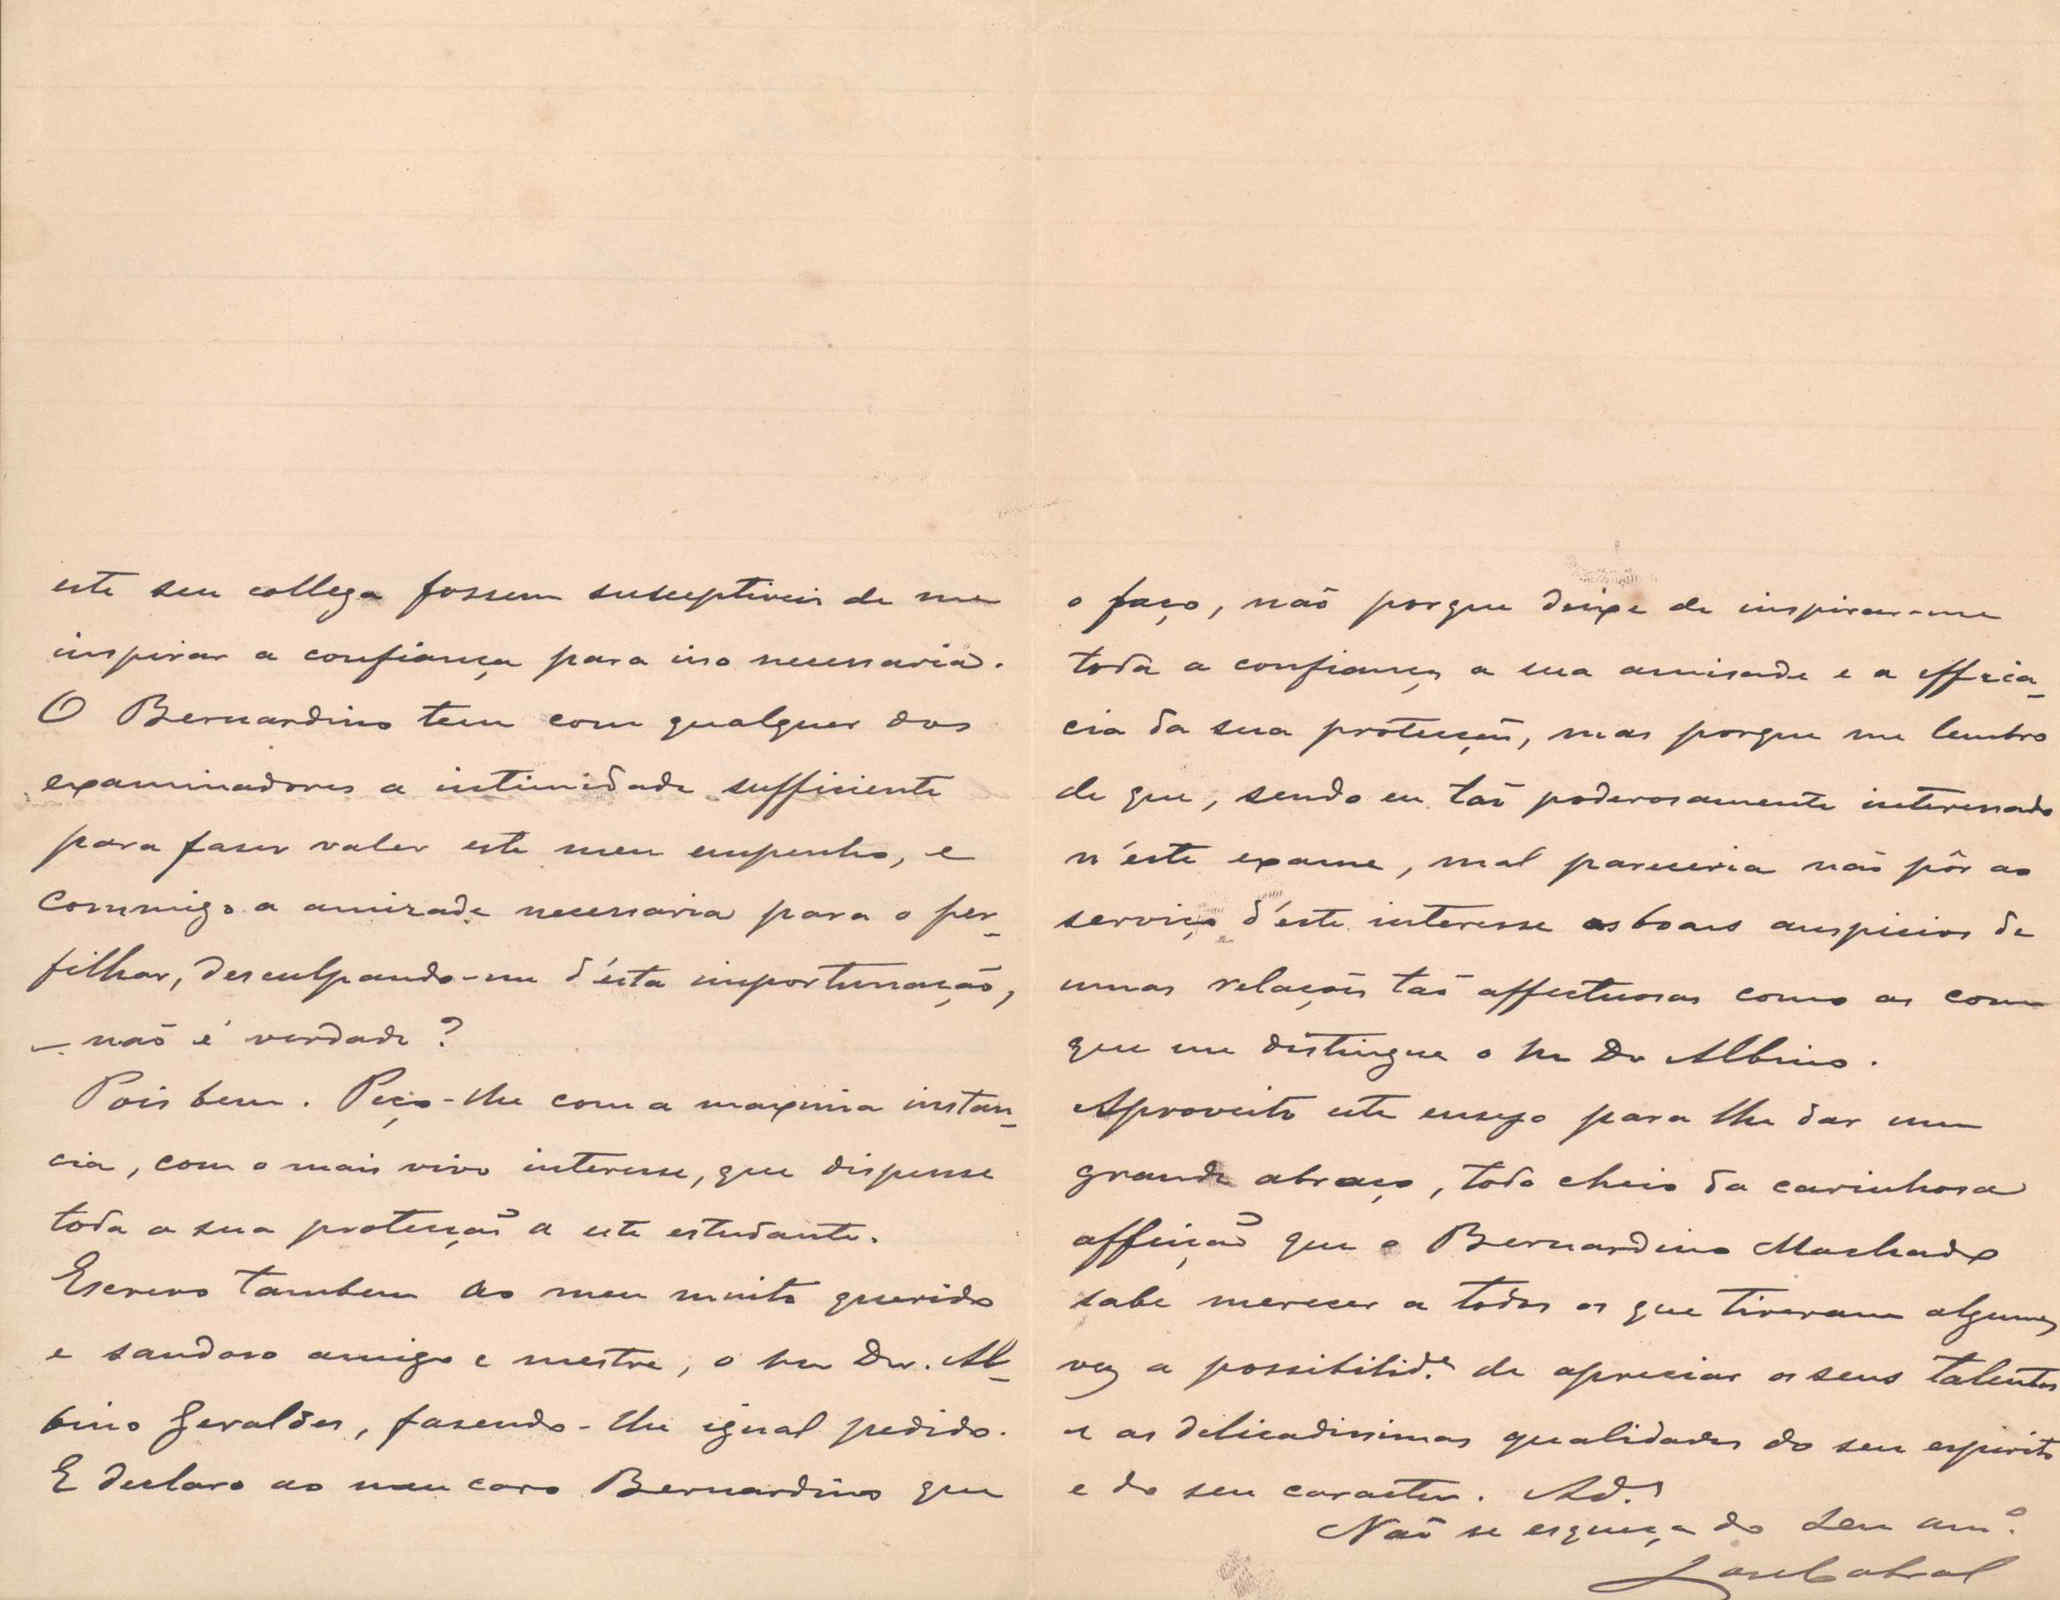 este seu collega fossem susceptiveis de me
inspirar a confiança para isso necessaria.
O Bernardino tem com qualquer dos
examinadores a intimidade sufficiente
para fazer valer este meu empenho, e
commigo a amizade necessaria para o per-
filhar, desculpando-me d'esta importunação,
— não é verdade?
Pois bem. Peço-lhe com a maxima instan-
cia, com o mais vivo interesse, que dispense
toda a sua protecção a este estudante.
Escrevo tambem ao meu muito querido
e saudoso amigo e mestre, o Snr Dr. Al-
bino Geraldes, fazendo-lhe igual pedido.
E declaro ao meu caro Bernardino que
o faço, não porque deixe de inspirar-me
toda a confiança a sua amisade e a effica-
cia da sua protecção, mas porque me lembro
de que, sendo eu tão poderosamente interessado
n'este exame, mal pareceria não pôr ao
serviço d'este interesse os boas auspicios de
umas relações tão affectuosas como as com
que me distingue o Snr Dr Albino.
Aproveito este ensejo para lhe dar um
grande abraço, todo cheio da carinhosa
affeição que o Bernardino Machado
sabe merecer a todos os que tiveram alguma
vez a possibilid.e de apreciar os seus talentos
e as delicadissimas qualidades do seu espirito
e do seu caracter. Ad.s
Não se esqueça do seu am.o
Cabral